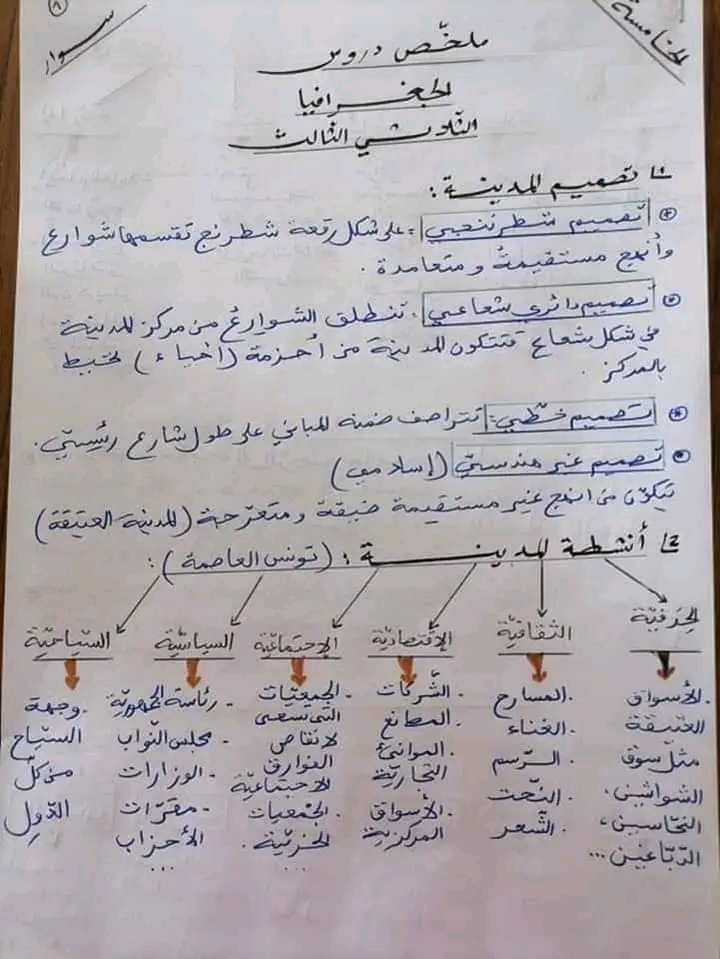 ٨
سوار
الخامسة
ملخّص دروس
الجغرافيا
الثلاثي الثالث
1/ تصميم المدينة :
تصميم شطرنجي : على شكل رقعة شطرنج تقسمها شوارع
وأنهج مستقيمة و متعامدة .
تصميم دائري شعاعي : تنطلق الشوارع من مركز المدينة
في شكل شعاع فتتكون المدينة من أحزمة (أحياء) تحيط
بالمركز .
تصميم خطّي : تتراصف ضمنه المباني على طول شارع رئيسيّ .
تصميم غير هندسيّ (إسلامي)
يتكوّن من انهج غير مستقيمة ضيقة و متعرّجة (المدينة العتيقة)
2/ أنشطة المدينة : (تونس العاصمة) :
الحِرَفيّة
الثقافيّة
الإقتصاديّة
الإجتماعيّة
السياسيّة
السّياحيّة
. الأسواق
العتيقة
مثل سوق
الشواشين،
النحّاسين،
الدبّاغين...
. المسارح
. الغناء
. الرّسم
. النّحت
. الشّعر
. الشّركات
. المصانع
. الموانئ
التجاريّة
. الأسواق
المركزية
. الجمعيّات
التي تسعى
لانقاص
الفوارق
الاجتماعيّة
. الجمعيات
الخيريّة .
...
- رئاسة الجمهوريّة
- مجلس النّواب
- الوزارات
- مقرّات
الأحزاب
...
. وجهة
السيّاح
من كلّ
الدّول